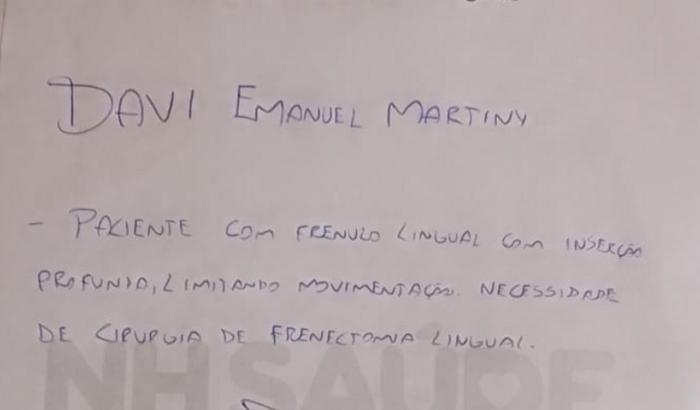 DAVI EMANUEL MARTINY
- PACIENTE COM FRENULO LINGUAL COM INSERÇÃO
PROFUNDA, LIMITANDO MOVIMENTAÇÃO. NECESSIDADE
DE CIRURGIA DE FRENECTOMIA LINGUAL.
NH SAÚDE